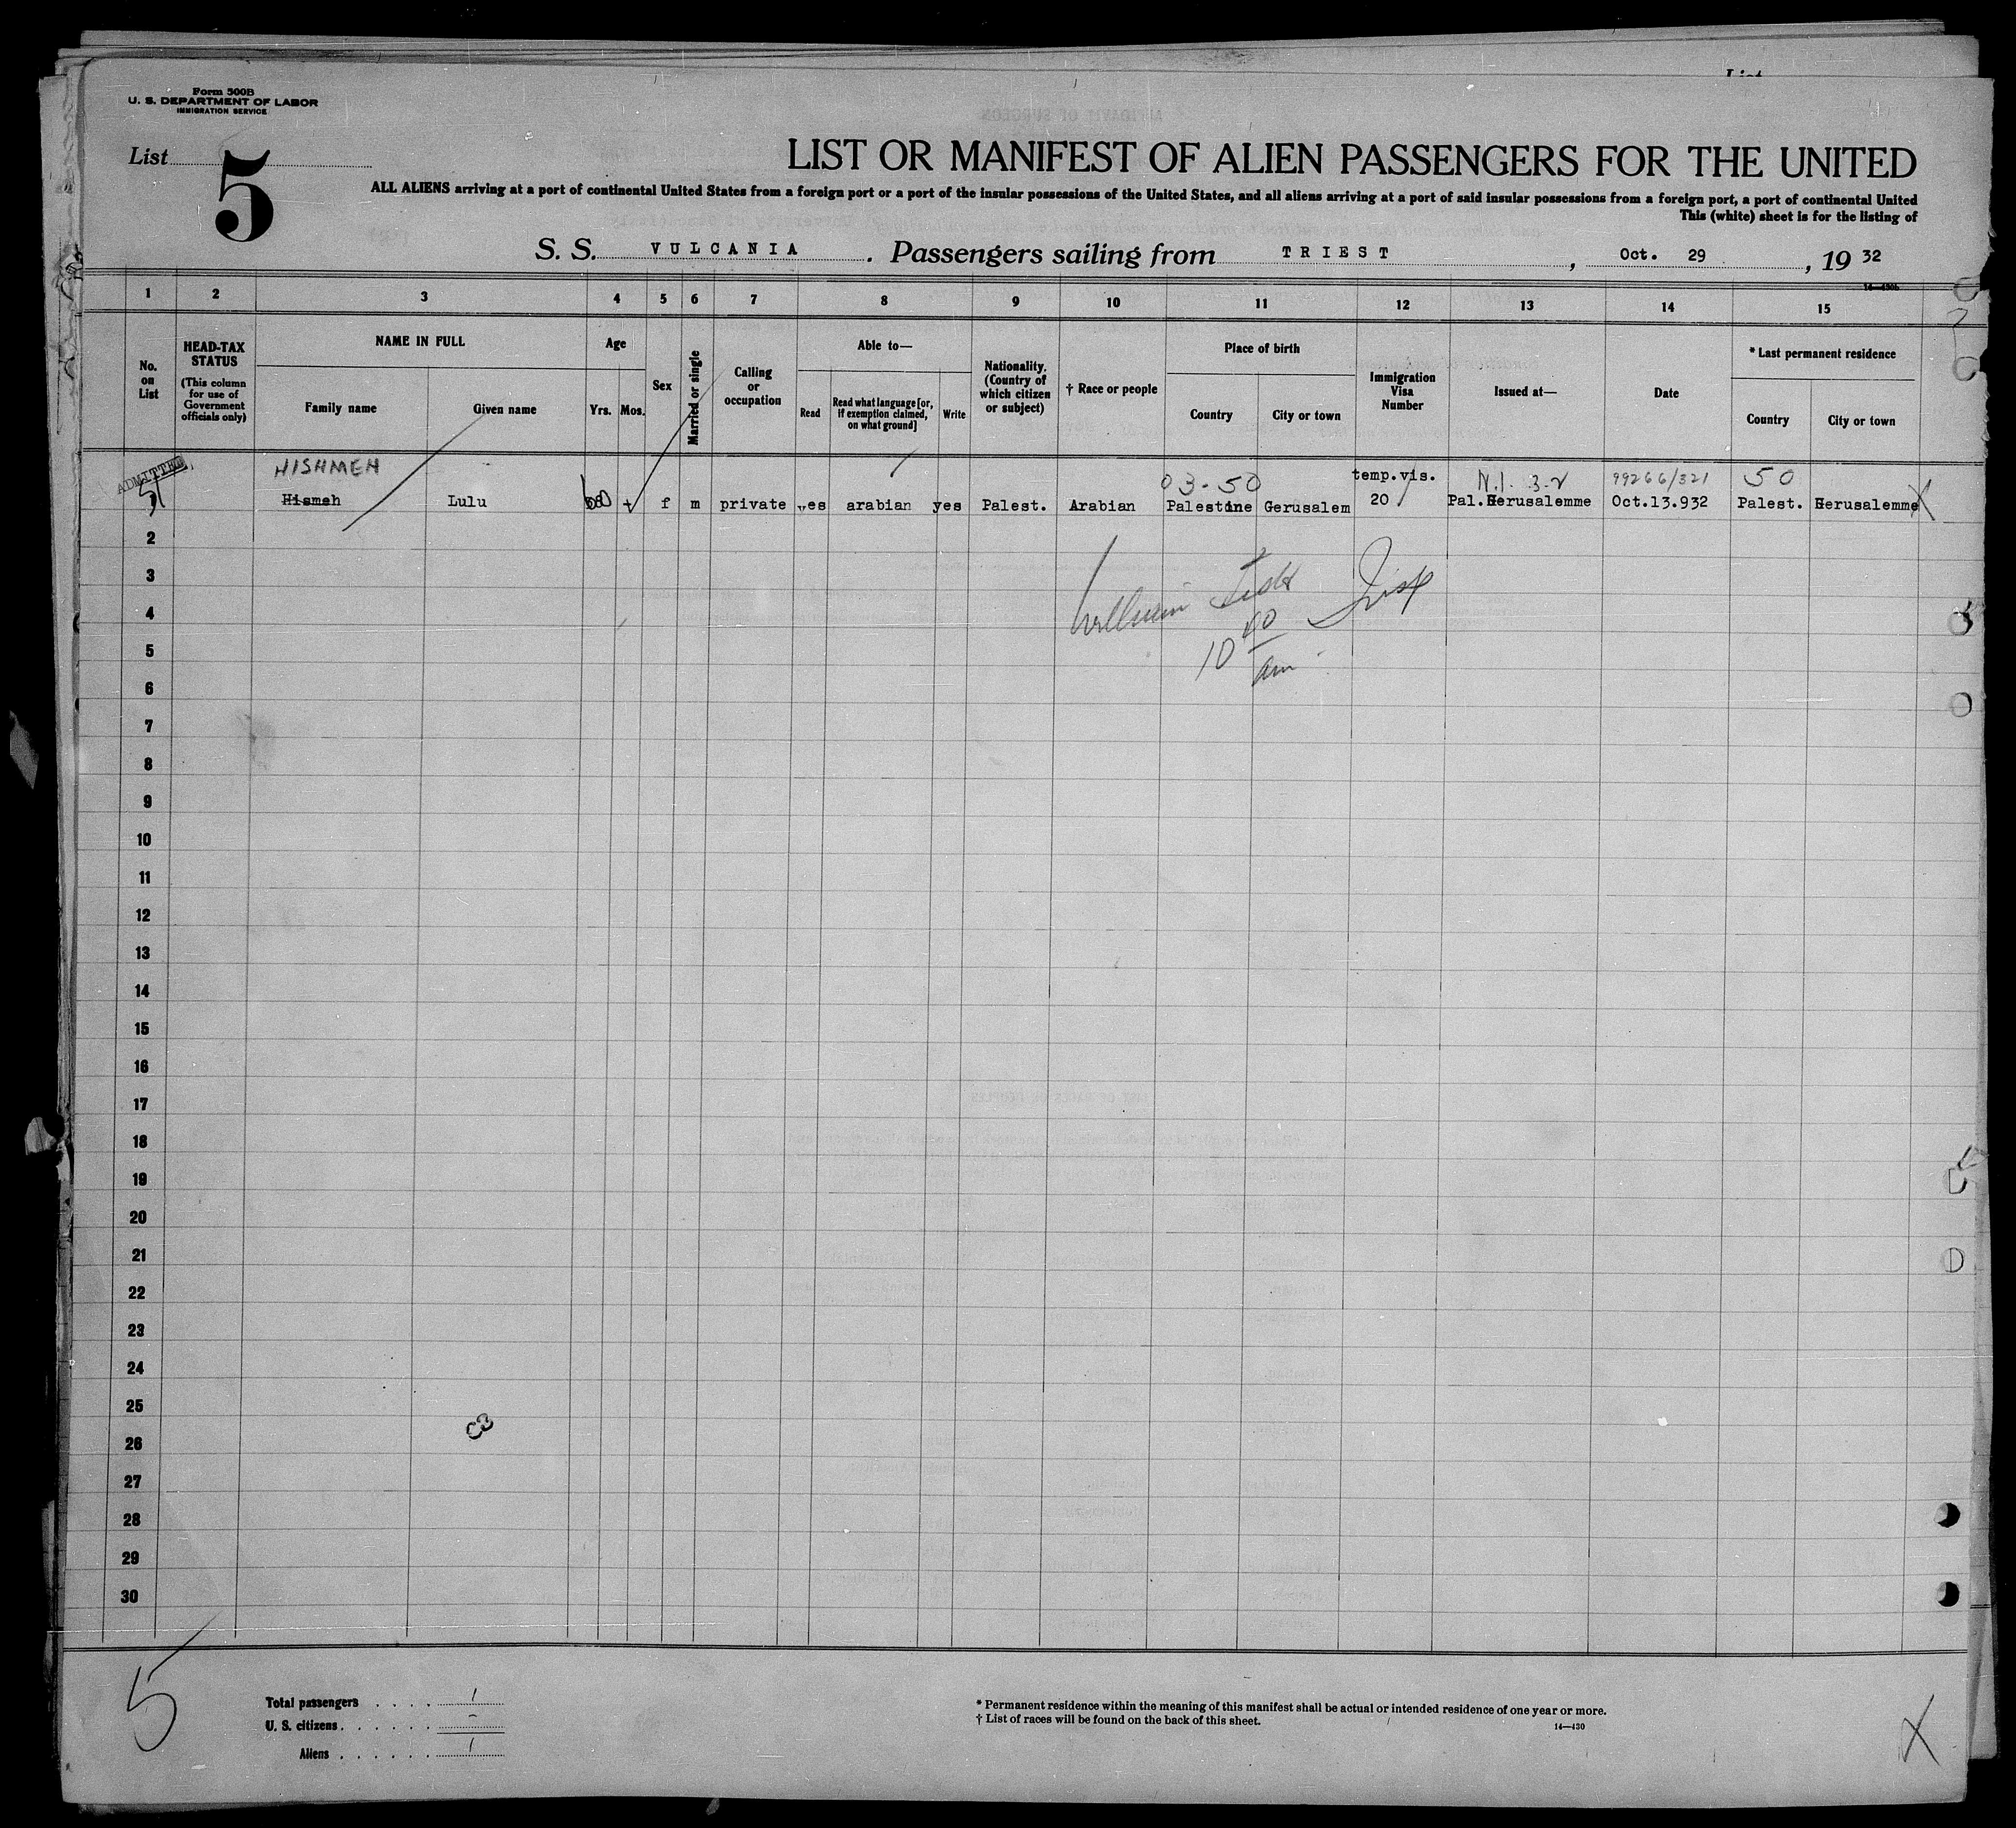 Form 500B
U. S. DEPARTMENT OF LABOR
IMMIGRATION SERVICE
List
List 5
LIST OR MANIFEST OF ALIEN PASSENGERS FOR THE UNITED
ALL ALIENS arriving at a port of continental United States from a foreign port or a port of the insular possessions of the United States, and all aliens arriving at a port of said insular possessions from a foreign port, a port of continental United
This (white) sheet is for the listing of
S. S. VULCANIA. Passengers sailing from TRIEST, Oct. 29, 19 32
14—430b
1 2 3 4 5 6 7 8 9 10 11 12 13 14 15
No. on List
HEAD-TAX STATUS
(This column for use of Government officials only)
NAME IN FULL
Family name
Given name
Age
Yrs. Mos.
Sex
Married or single
Calling or occupation
Able to—
Read
Read what language [or, if exemption claimed, on what ground]
Write
Nationality. (Country of which citizen or subject)
† Race or people
Place of birth
Country
City or town
Immigration Visa Number
Issued at—
Date
* Last permanent residence
Country
City or town
ADMITTED
HISHMEH 03-50 temp.vis. N.I. 3-2 99266/321 50
1 Hismeh Lulu f m private yes arabian yes Palest. Arabian Palestine Gerusalem 20 Pal. Gerusalemme Oct.13.932 Palest. Gerusalemme X
2
3
4
5
6
7
8
9
10
11
12
13
14
15
16
17
18
19
20
21
22
23
24
25
26
27
28
29
30
10 00 am
5
Total passengers . . . . . 1
U. S. citizens . . . . . . –
Aliens . . . . . . 1
* Permanent residence within the meaning of this manifest shall be actual or intended residence of one year or more.
† List of races will be found on the back of this sheet.
14—430
X